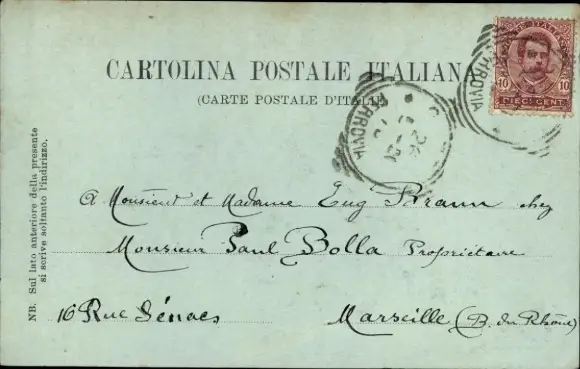 CARTOLINA POSTALE ITALIANA
(CARTE POSTALE D'ITALIE
10 10
DIECI CENT.
FERROVIA
NB. Sul lato anteriore della presente
si scrive soltanto l'indirizzo.
A Monsieur et Madame Eug Braun chez
Monsieur Paul Bolla Propriétaire
16 Rue Sénacs
Marseille (B. du Rhône)